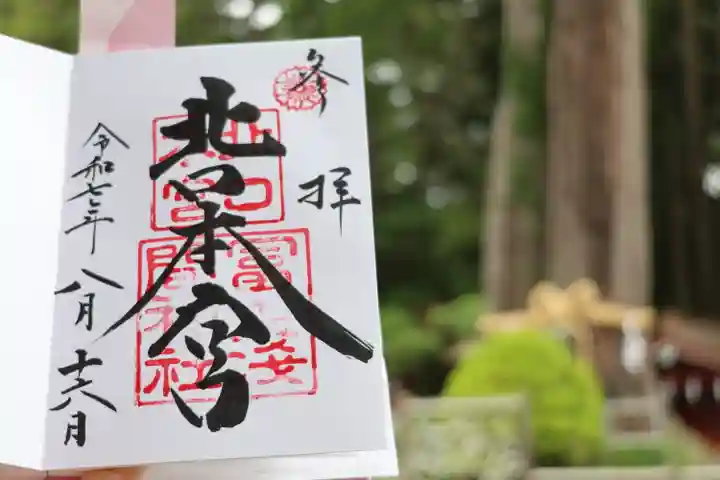 奉拝
北口本宮
北口本宮
冨士浅間神社
令和七年八月十六日